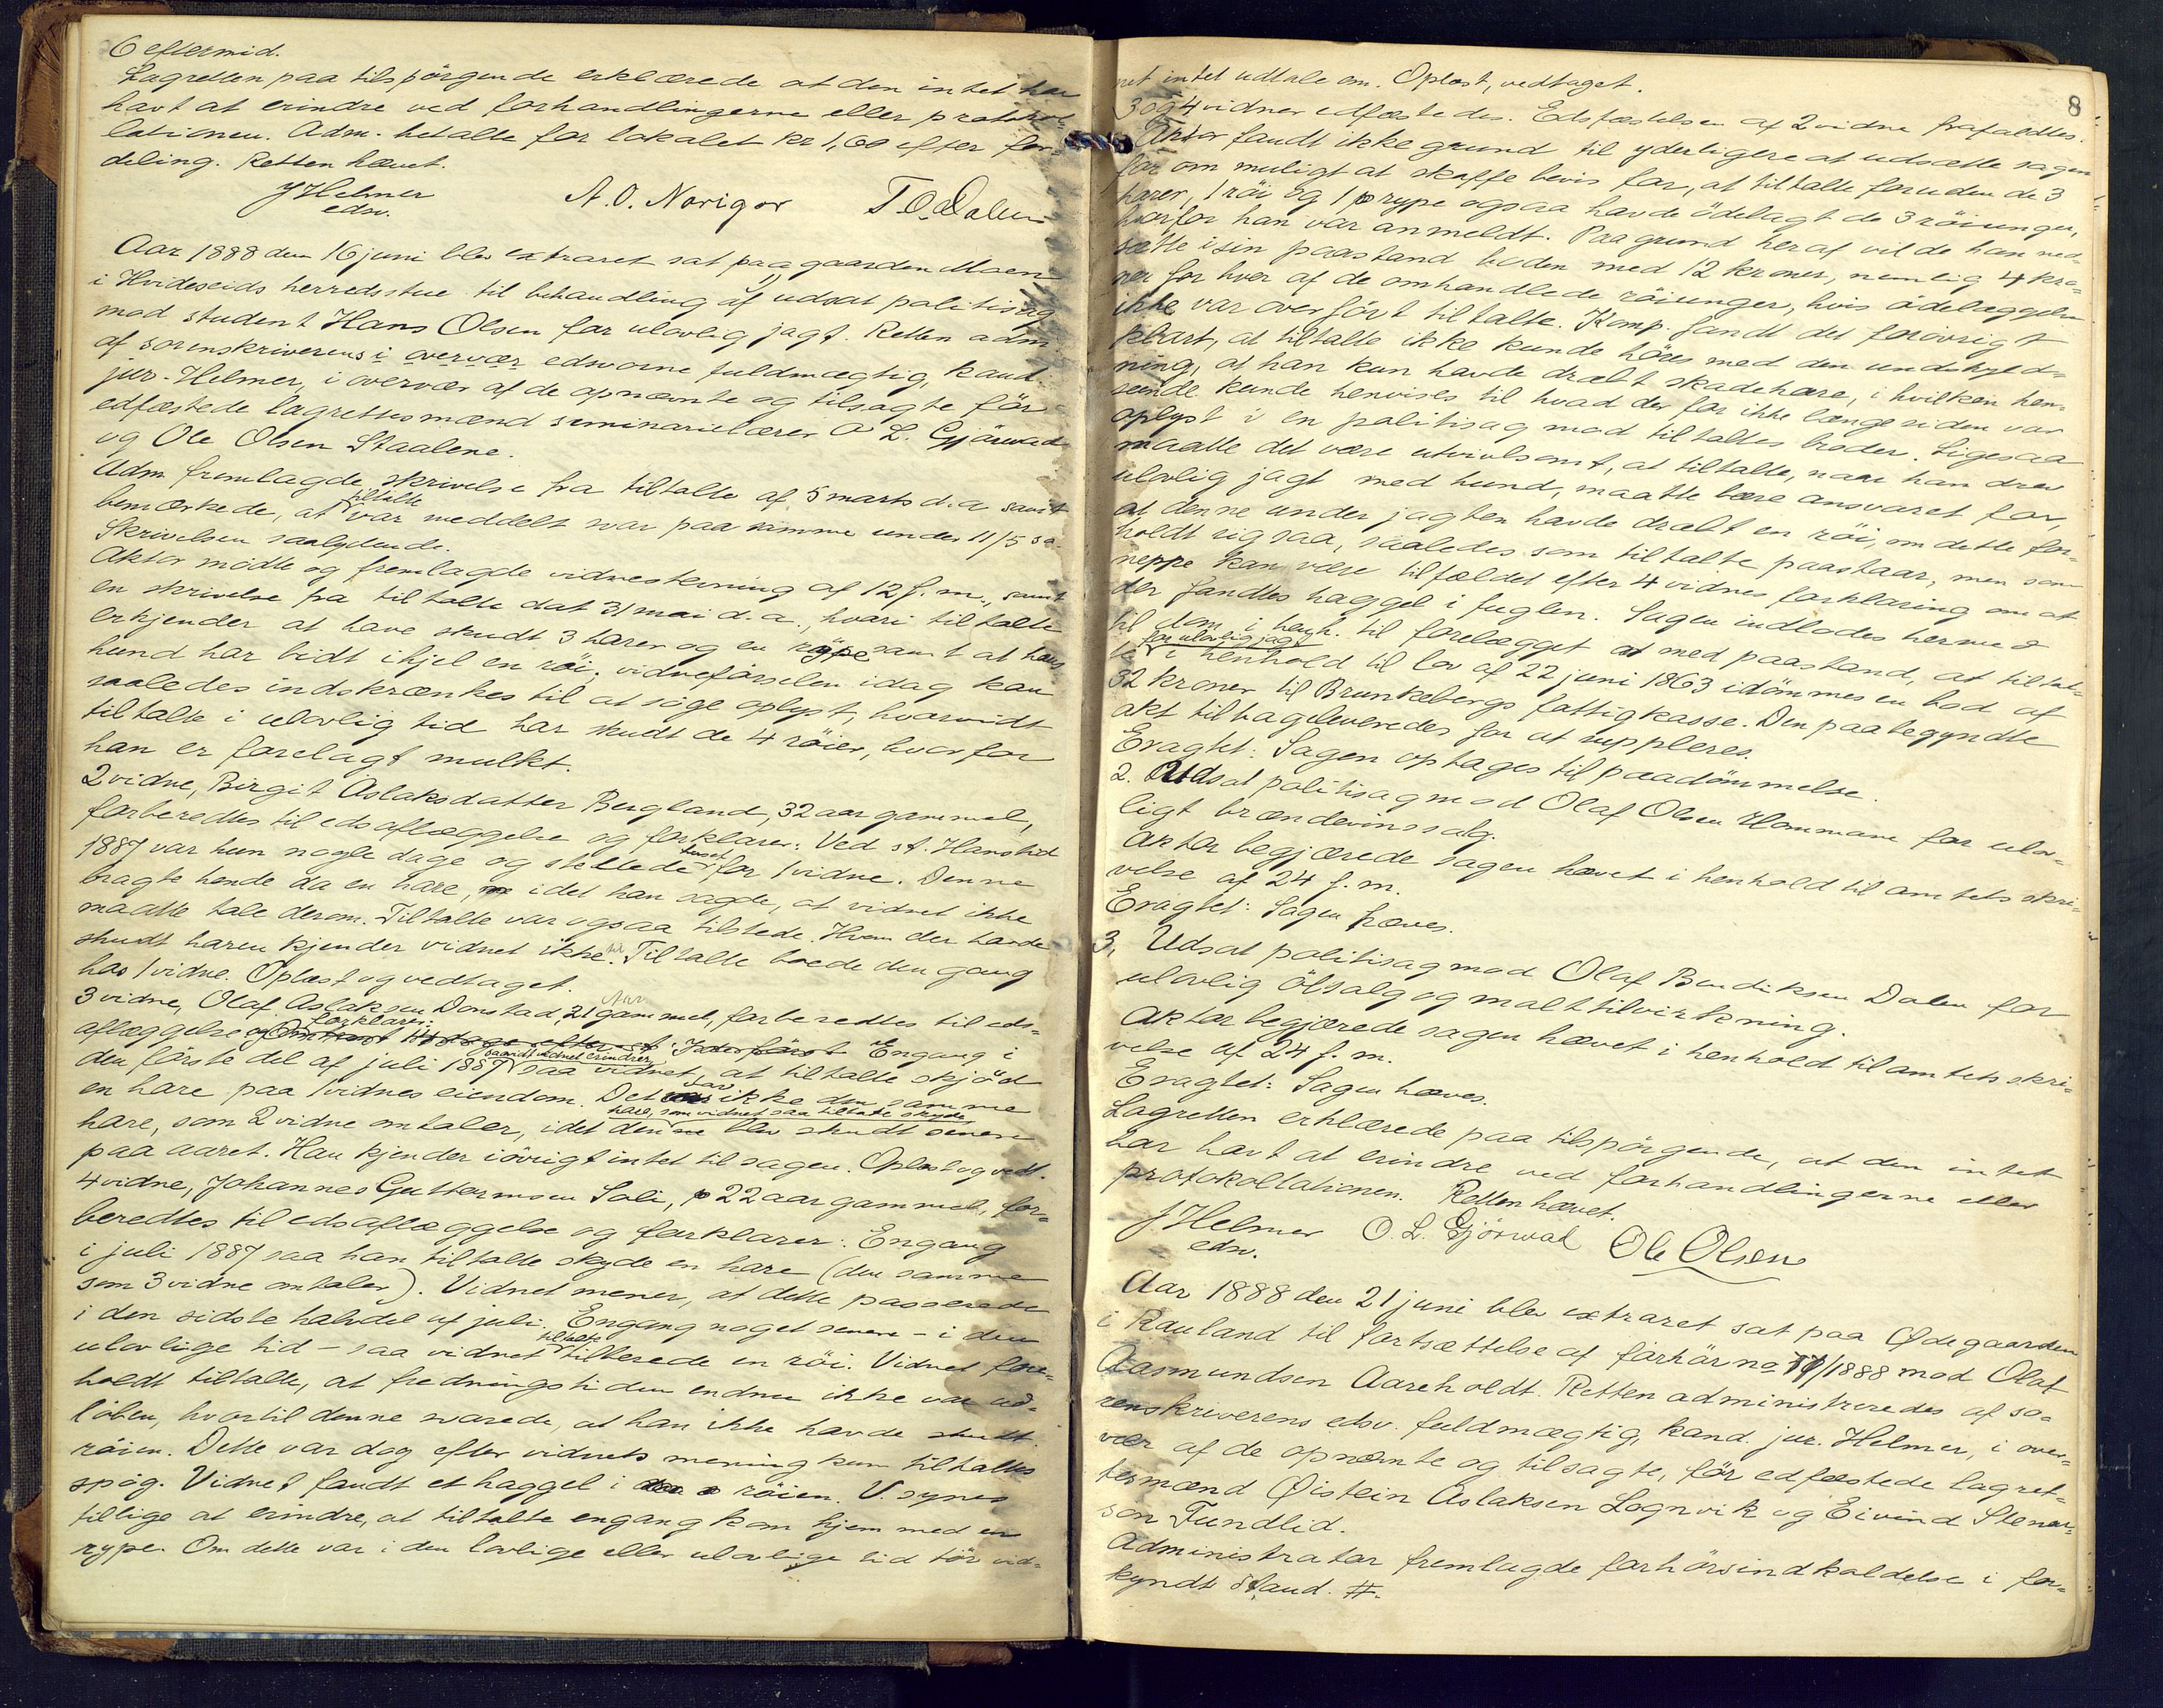 6 eftermid.
Lagretten paa tilspörgende erklærede at den intet har
havt at erindre ved forhandlingerne eller protokol-
lationen. Adm. betalte for lokalet kr 1,60 efter for-
deling. Retten hævet.
J Helmer A. O. Norigor T O. Dalen
edsv.
Aar 1888 den 16 juni blev extraret sat paa gaarden Moen
i Hvideseids herredsstue til behandling af udsat politisag
mod student Hans Olsen for ulovlig jagt. Retten adm.
af sorenskriverens i overvær edsvorne fuldmægtig, kand.
jur. Helmer, i overvær af de opnævnte og tilsagte för
edfæstede lagrettesmænd seminarielærer O L. Gjörwad
og Ole Olsen Staalene.
Adm fremlagde skrivelse fra tiltalte af 5 marts d.a. samt
bemærkede, at tiltalte var meddelt svar paa samme under 11/5 s.a.
Skrivelsen saalydende.
Aktor mödte og fremlagde vidnestevning af 12 f. m., samt
en skrivelse fra tiltalte dat 31 mai d. a., hvori tiltalte
erkjender at have skudt 3 harer og en rype samt at hans
hund har bidt ihjel en röi. vidneförselen idag kan
saaledes indskrænkes til at söge oplyst, hvorvidt
tiltalte i ulovlig tid har skudt de 4 röier, hvorfor
han er forelagt mulkt.
2 vidne, Birgit Aslaksdatter Bergland, 32 aar gammel,
forberedtes til edsaflæggelse og forklarer: Ved st. Hanstid
1887 var hun nogle dage og stellede huset for 1 vidne. Denne
bragte hende da en hare, idet han sagde, at vidnet ikke
maatte tale derom. Tiltalte var ogsaa tilstede. Hvem der havde
skudt haren kjender vidnet ikke til. Tiltalte boede den gang
hos 1 vidne. Oplæst og vedtaget.
3 vidne, Olaf Aslaksen Donstad, 21 aar gammel, forberedtes til eds-
aflæggelse og forklarer: Engang i
den förste del af juli 1887 saavidt vidnet erindrer saa vidnet, at tiltalte skjöd
en hare paa 1 vidnes eiendom. Det var ikke den samme
hare, som 2 vidne omtaler, idet den hare, som vidnet saa tiltalte skyde blev skudt senere
paa aaret. Han kjender iövrigt intet til sagen. Oplæst og vedt.
4 vidne, Johannes Guttormsen Soli, 22 aar gammel, for-
beredtes til edsaflæggelse og forklarer: Engang
i juli 1887 saa han tiltalte skyde en hare (den samme
som 3 vidne omtaler). Vidnet mener, at dette passerede
i den sidste halvdel af juli. Engang noget senere - i den
ulovlige tid - saa vidnet tiltalte tilberede en röi. Vidnet fore-
holdt tiltalte, at fredningstiden endnu ikke var ud-
löben, hvortil denne svarede, at han ikke havde skudt
röien. Dette var dog efter vidnets mening kun tiltaltes
spög. Vidnet fandt et haggel i röien. V. synes
tillige at erindre, at tiltalte engang kom hjem med en
rype. Om dette var i den lovlige eller ulovlige tid tör vid-
net intet udtale om. Oplæst, vedtaget.
8
3 og 4 vidner edfæstedes. Edsfæstelsen af 2 vidne frafaldtes.
Aktor fandt ikke grund til yderligere at udsætte sagen
for om muligt at skaffe bevis for, at tiltalte foruden de 3
harer, 1 röi og 1 rype ogsaa havde ödelagt de 3 röiunger,
hvorfor han var anmeldt. Paa grund heraf vilde han ned-
sætte i sin paastand boden med 12 kroner, nemlig 4 kro-
ner for hver af de omhandlede röiunger, hvis ödelæggelse
ikke var overfört tiltalte. Komp. fandt det forövrigt
klart, at tiltalte ikke kunde höres med den undskyld-
ning, at han kun havde dræbt skadehare, i hvilken hen-
seende kunde henvises til hvad der for ikke længe siden var
oplyst i en politisag mod tiltaltes broder. Ligesaa
maatte det være utvivlsomt, at tiltalte, naar han drev
ulovlig jagt med hund, maatte bære ansvaret for,
at denne under jagten havde dræbt en röi, om dette for-
holdt sig saa, saaledes som tiltalte paastaar, men som
neppe kan være tilfældet efter 4 vidnes forklaring om at
der fandtes haggel i fuglen. Sagen indlodes hermed
til dom i henh. til forelægget med paastand, at tiltal-
te for ulovlig jagt i henhold til lov af 22 juni 1863 idömmes en bod af
32 kroner til Brunkebergs fattigkasse. Den paabegyndte
akt tilbageleveredes for at suppleres.
Eragtet: Sagen optages til paadömmelse.
2. Udsat politisag mod Olaf Olsen Hommane for ulov-
ligt brændevinssalg.
Aktor begjærede sagen hævet i henhold til amtets skri-
velse af 24 f. m.
Eragtet: Sagen hæves.
3, Udsat politisag mod Olaf Bendiksen Dalen for
ulovlig ölsalg og malttilvirkning.
Aktor begjærede sagen hævet i henhold til amtets skri-
velse af 24 f. m.
Eragtet: Sagen hæves.
Lagretten erklærede paa tilspörgende, at den intet
har havt at erindre ved forhandlingerne eller
protokollationen. Retten hævet.
J Helmer O. L. Gjörwad Ole Olsen
edsv.
Aar 1888 den 21 juni blev extraret sat paa Ødegaarden
i Rauland til fortsættelse af forhör no 17/1888 mod Olaf
Aasmundsen Aareholdt. Retten administreredes af so-
renskriverens edsv. fuldmægtig, kand. jur. Helmer, i over-
vær af de opnævnte og tilsagte, för edfæstede lagret-
tesmænd Øistein Aslaksen Lognvik og Eivind Stenar-
son Fundlid.
Administrator fremlagde forhörsindkaldelse i for-
kyndt stand. #.